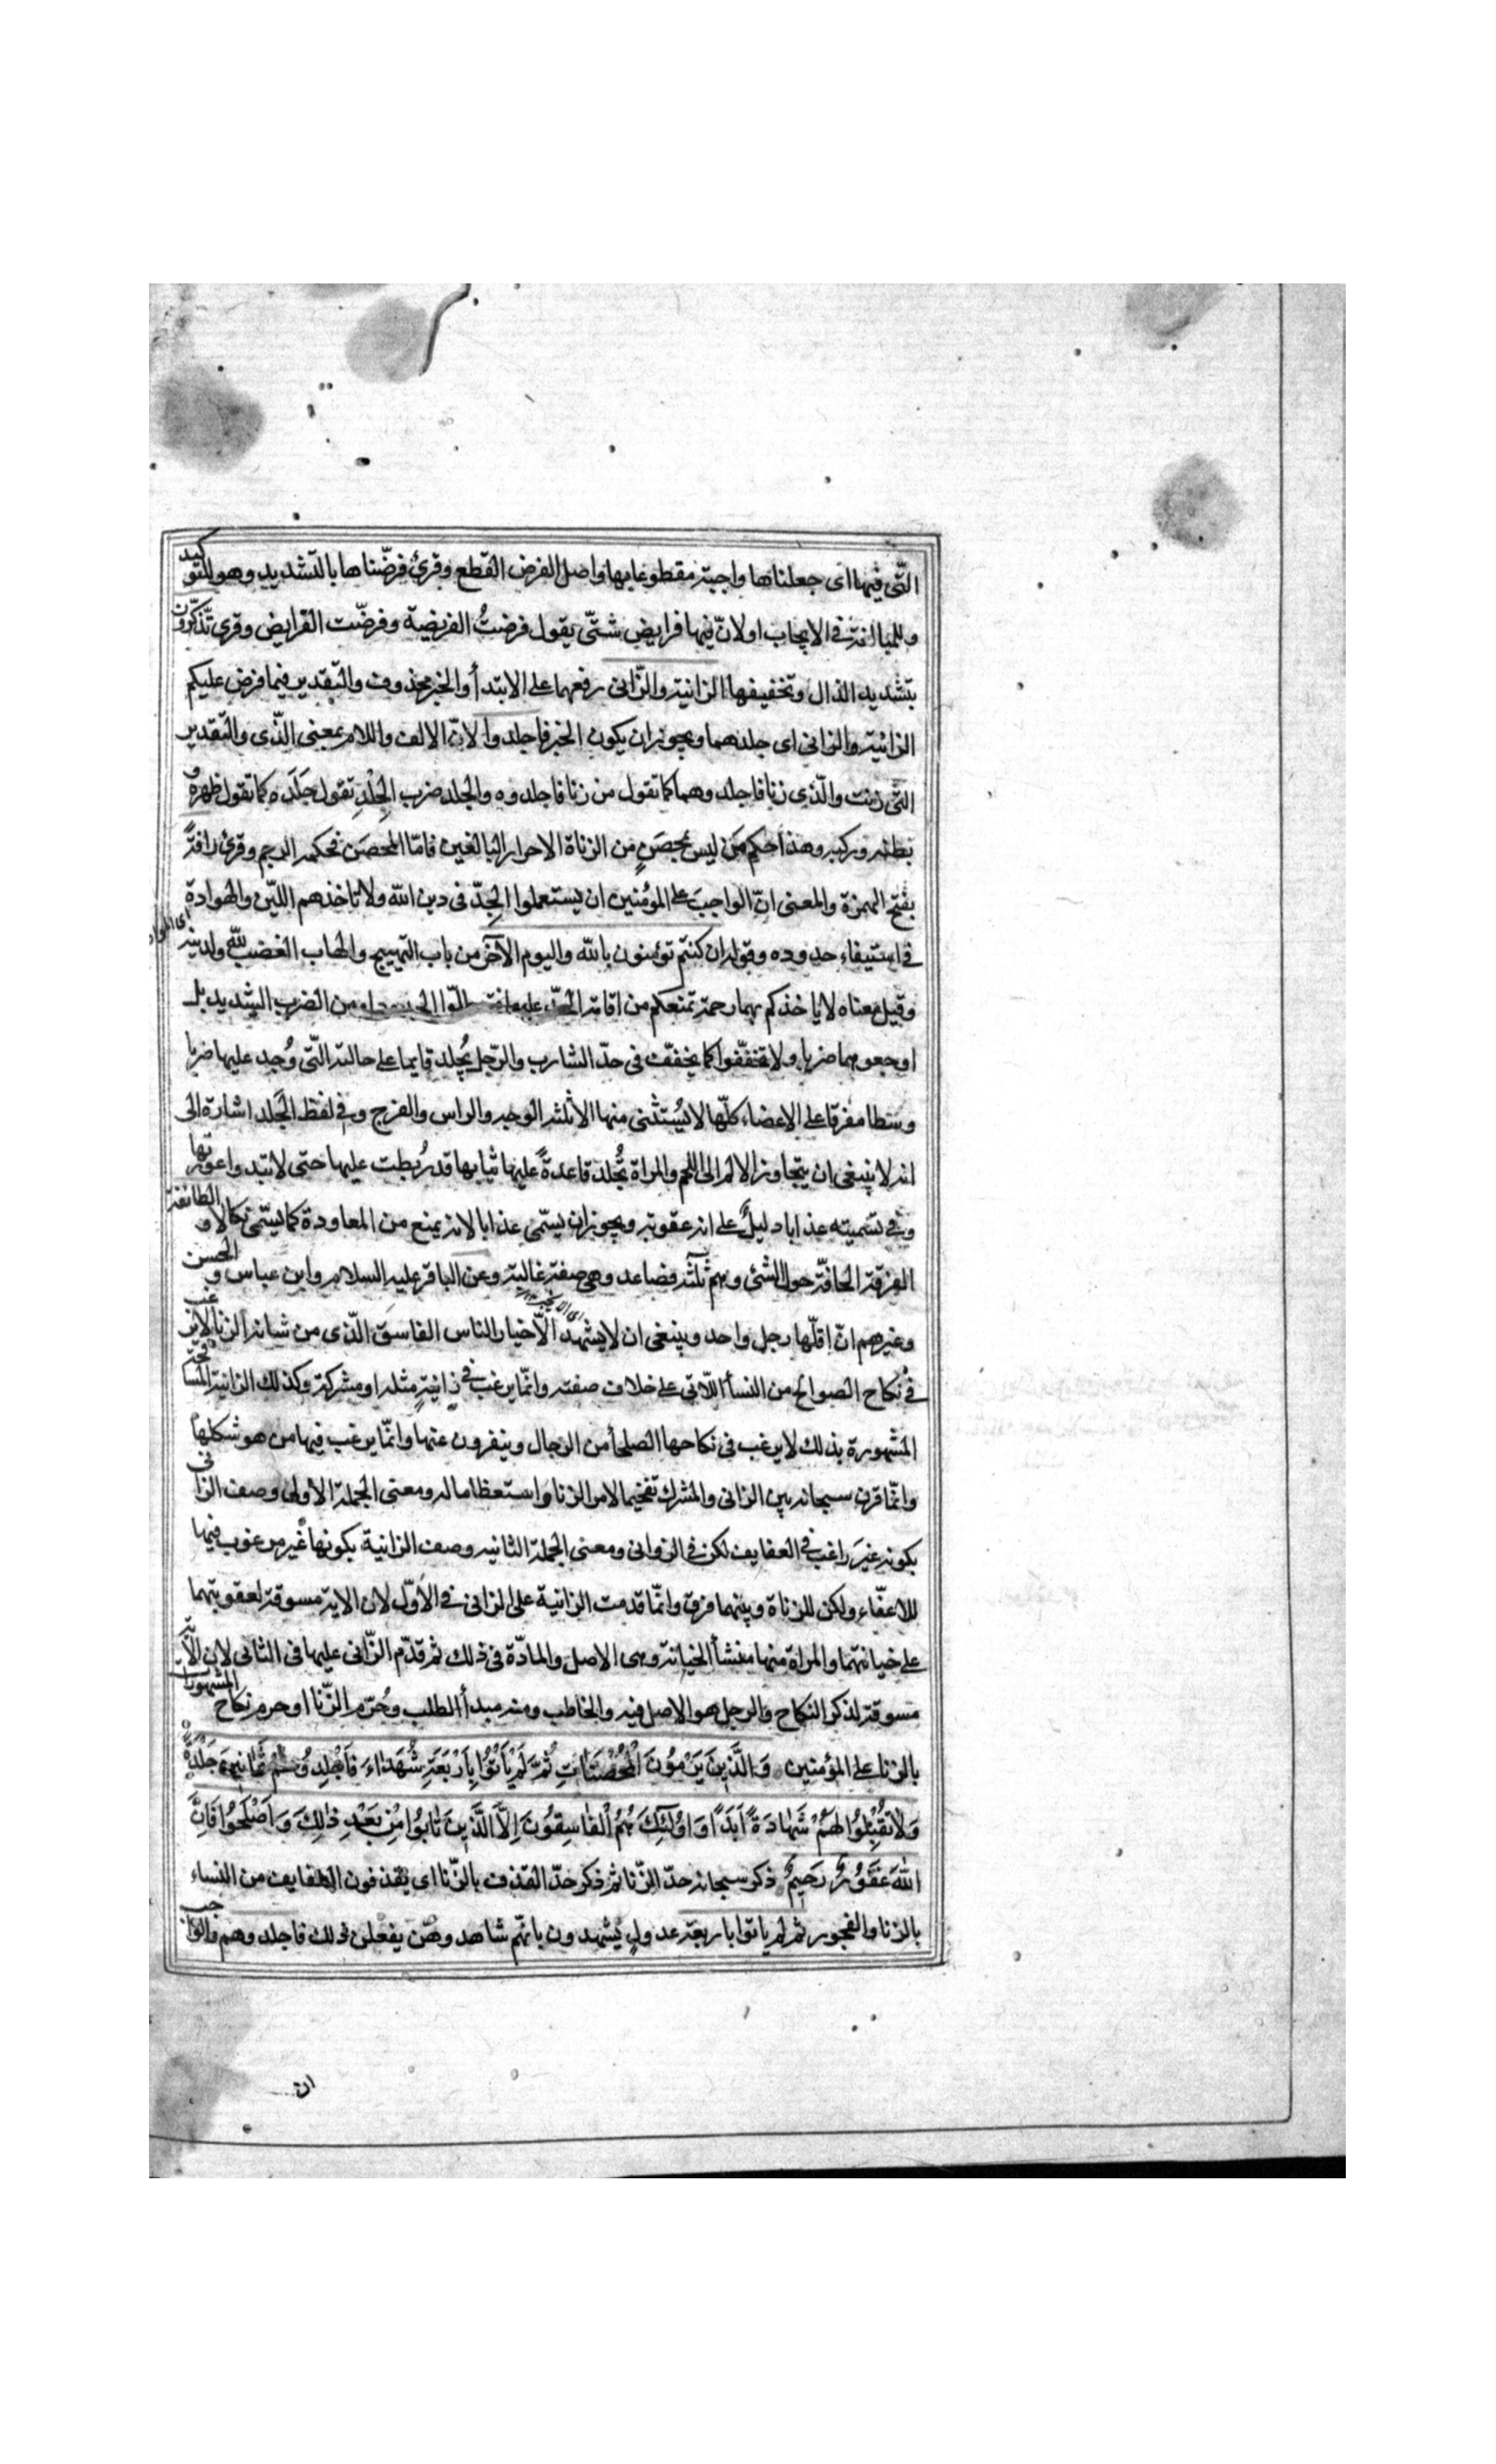 التّى فيها اى جعلناها واجبة مقطوعا بها واصل الفرض القطع وقرئ فرّضناها بالتشديد وهو للتوكيد
وللمبالغة فى الايجاب او لانّ فيها فرايض شتّى يقول فرضتُ الفريضة وفرضّت الفرايض وقرى تذّكّرون
بتشديد الذال وتخفيفها الزانية والزّانى رفعهما على الابتدأ والخبر محذوف والتّقدير فيما فرض عليكم
الزانية والزانى اى جلدهما ويجوز ان يكون الخبر فاجلدوا لانّ الالف واللام بمعنى الذّى والتّقدير
التّى زنت والّذى زنا فاجلدوهما كما تقول من زنا فاجلدوه والجلد ضرب الجِلْدِ تقول جَلَدَه كما تقول ظهره و
بطنه وركبه وهذا حكم مَن ليس بمحصَنٍ من الزناة الاحرار البالغين فامّا المحصَن فحكمه الرجم وقرئ رافةً
بفتح الهمزة والمعنى انّ الواجبَ على المؤمنين ان يستعملوا الجِدّ فى دين الله ولا تاخذهم اللّين والهوادة
فى استيفاء حدوده وقوله ان كنتم تؤمنون بالله واليوم الآخر من باب التهييج والهاب الغضب لله ولدينه
وقيل معناه لا ياخذكم بهما رحمة تمنعكم من اقامة الحدّ عليهما من الضرب الشديد بل
اوجعوهما ضربا ولا تخفّفوا كما يخفّف فى حدّ الشارب والرّجل يُجلد قايما على حالته التّى وُجد عليها ضربا
وسَطا مفرقا على الاعضاء كلّها لا يُستثنى منها الا ثلثه الوجه والراس والفرج وفى لفظ الجَلد اشارة الى
انه لا ينبغى ان يتجاوز الالم الى اللحم والمراة تُجلد قاعدةً عليها ثيابها قد رُبطت عليها حتى لا تبدوا عورتها
وفى تسميته عذابا دليلٌ على انه عقوبة ويجوز ان يسمّى عذابا لانه يمنع من المعاودة كما يسمّى نكالا و الطائفة
الفرقة الحافّة حول الشئ وهم ثلثة فصاعدا وهى صفة غالبة وعن الباقر عليه السلام وابن عباس و الحسن
وغيرهم انّ اقلّها رجل واحد وينبغى ان لا يشهد الّا خيار الناس الفاسق الّذى من شانه الزنا لا يرغب
فى نكاح الصوالح من النسأ اللّاتى على خلاف صفته وانّما يرغب فى زانيةٍ مثله او مشركة وكذلك الزانية المسافحة
المشهورة بذلك لا يرغب فى نكاحها الصلحأ من الرجال وينفرون عنها وانّما يرغب فيها من هو شكلها
وانّما قرن سبحانه بين الزانى والمشرك تفخيما لامر الزنا واستعظاما له ومعنى الجملة الاولى وصف الزانى
بكونه غيرَ راغب فى العفايف لكن فى الزوانى ومعنى الجملة الثانيه وصف الزانية بكونها غير مرغوب فيها
للاعفّاء ولكن للزناة وبينهما فرق وانّما قدمت الزانية على الزانى فى الأوّل لان الاية مسوقة لعقوبتهما
على خيانتهما والمراة منها منشأ الخيانة وهى الاصل والمادّة فى ذلك ثم قدّم الزّانى عليها فى الثانى لان الآية
مسوقة لذكر النكاح والرجل هو الاصل فيه والخاطب ومنه مبدأ الطلب وحُرّم الزّنا او حرم نكاح المشهورات
بالزنا على المؤمنين وَالَّذينَ يَرْمُونَ الْمُحْصَنَاتِ ثُمَّ لَمْ يَأْتُوا بِأَرْبَعَةِ شُهَدَاءَ فَاجْلِدُوهُمْ ثَمَانِينَ جَلْدَةً
وَلَا تَقْبَلُوا لَهُمْ شَهَادَةً اَبَدًا وَاُولٰئِكَ هُمُ الْفَاسِقُونَ اِلَّا الَّذِينَ تَابُوا مِنْ بَعْدِ ذٰلِكَ وَاَصْلَحُوا فَاِنَّ
اللّٰهَ غَفُورٌ رَحِيمٌ ذكر سبحانه حدّ الزّنا ثم ذكر حدّ القذف بالزّنا اى يقذفون العفايف من النساء
بالزنا والفجور ثم لم ياتوا باربعة عدولٍ يشهدون بانّهم شاهدوهنّ يفعلن ذلك فاجلدوهم والواجب